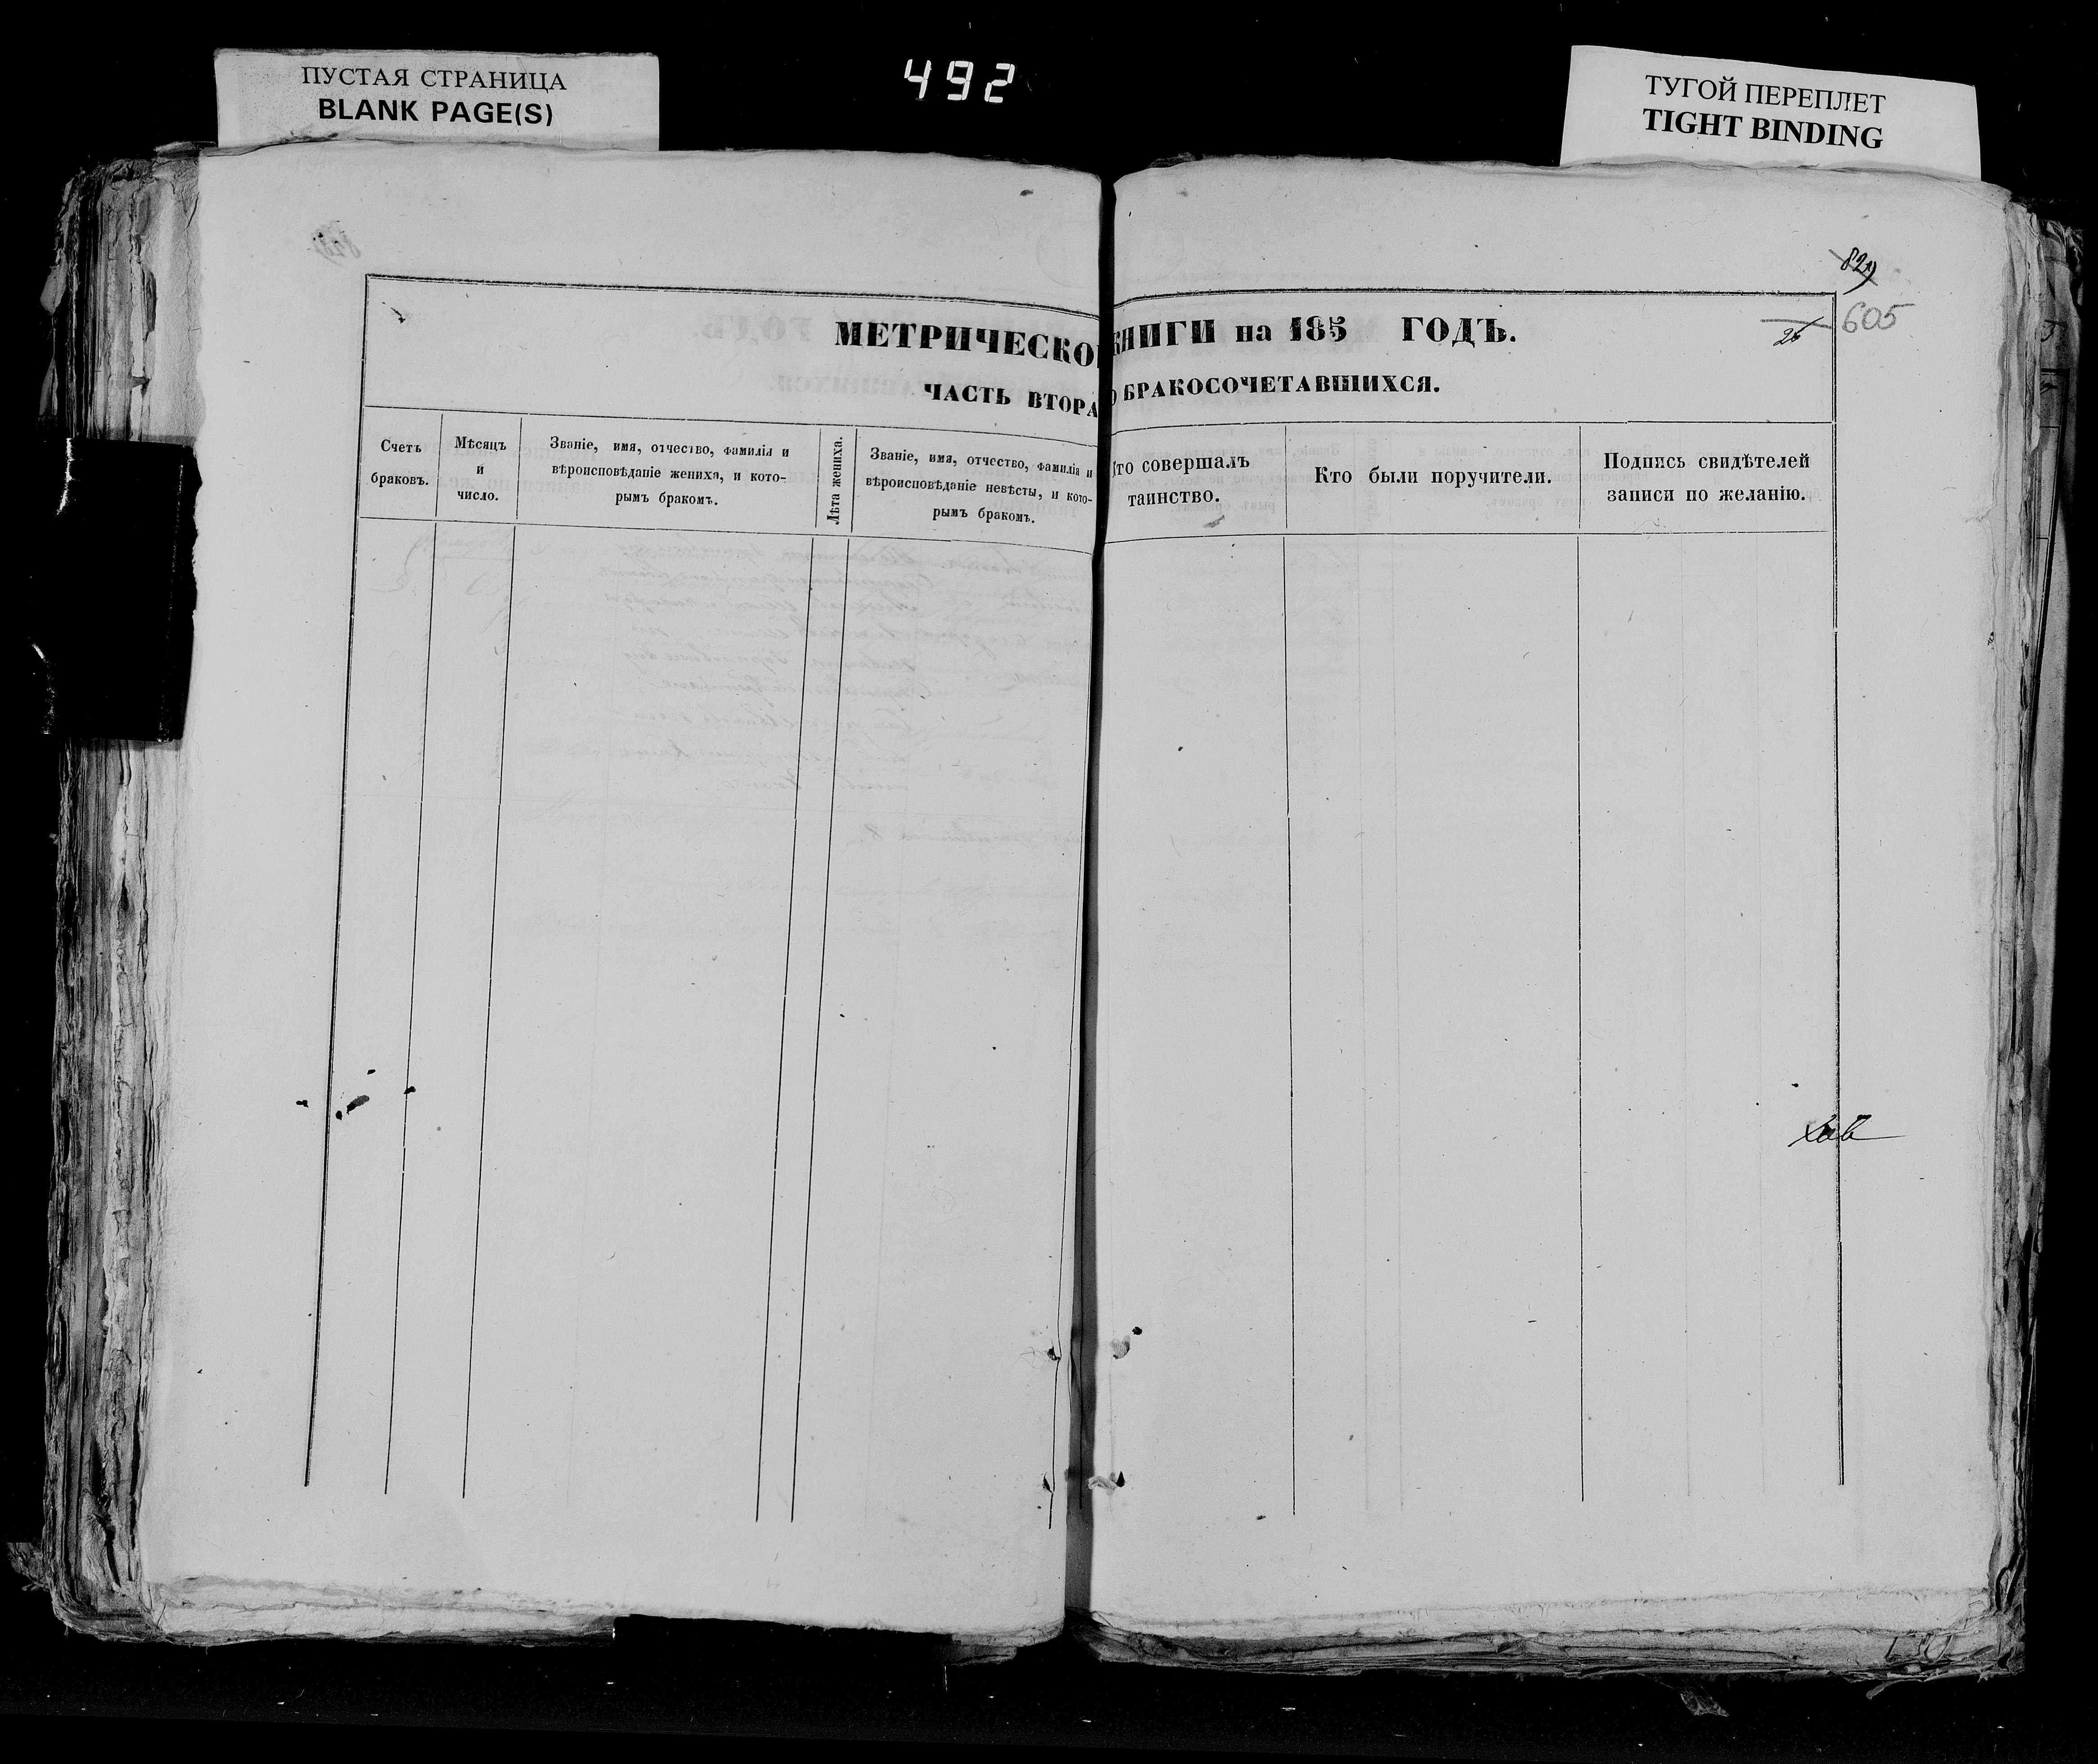 ПУСТАЯ СТРАНИЦА
BLANK PAGE(S)
492
ТУГОЙ ПЕРЕПЛЕТ
TIGHT BINDING
829
605
26
МЕТРИЧЕСКО КНИГИ на 185 ГОДЪ.
ЧАСТЬ ВТОРА О БРАКОСОЧЕТАВШИХСЯ.
Счетъ
браковъ.
Мѣсяцъ
и
число.
Званіе, имя, отчество, фамилія и
вѣроисповѣданіе жениха, и кото-
рымъ бракомъ.
Лѣта жениха.
Званіе, имя, отчество, фамилія и
вѣроисповѣданіе невѣсты, и кото-
рымъ бракомъ.
то совершалъ
таинство.
Кто были поручители.
Подпись свидѣтелей
записи по желанію.